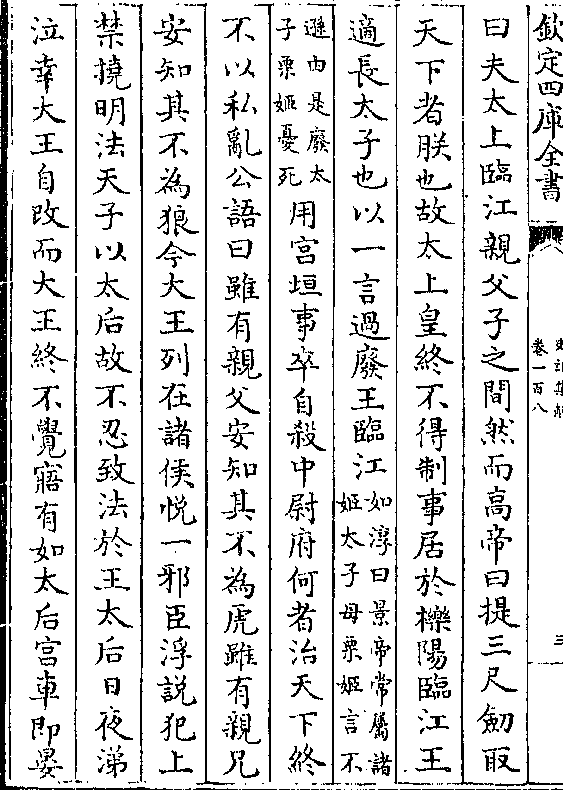 欽定四庫全書
卷一百八
三
曰夫太上臨江親父子之間然而高帝曰提三尺劒取
天下者朕也故太上皇終不得制事居於櫟陽臨江王
適長太子也以一言過廢王臨江如淳曰景帝常屬諸姬太子母栗姬言不
遜由是廢太子栗姬憂死用宫垣事卒自殺中尉府何者治天下終
不以私亂公語曰雖有親父安知其不為虎雖有親兄
安知其不為狼今大王列在諸侯悦一邪臣浮説犯上
禁撓明法天子以太后故不忍致法於王太后日夜涕
泣幸大王自改而大王終不覺寤有如太后宫車即晏